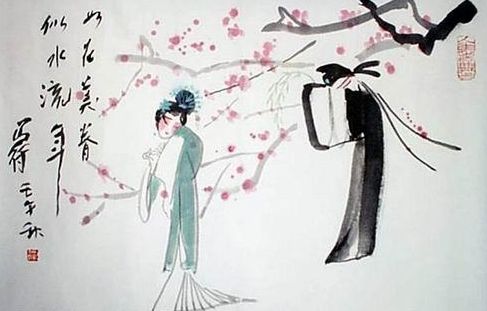 如花美眷
似水流年
马得 壬午秋